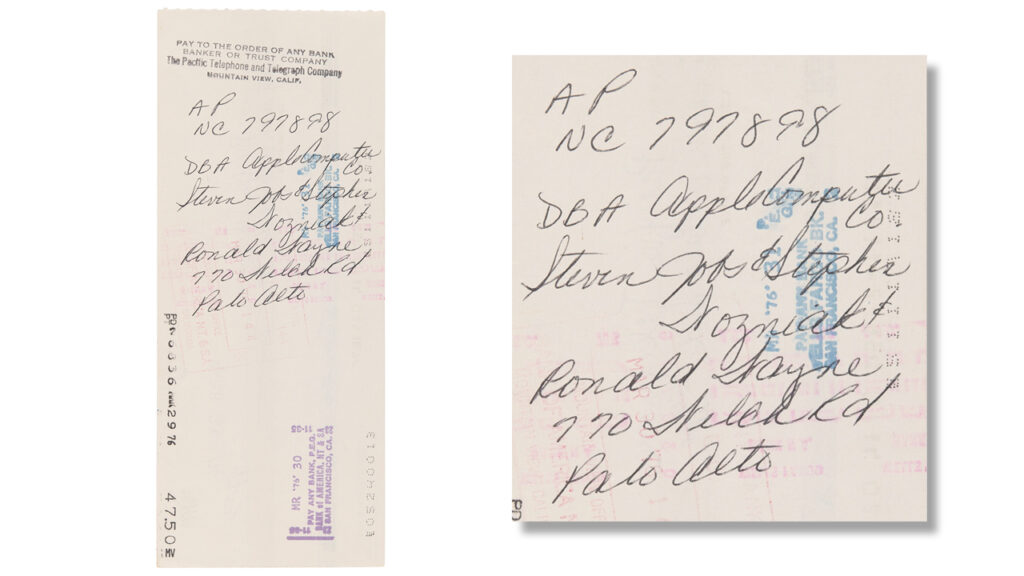 PAY TO THE ORDER OF ANY BANK
BANKER OR TRUST COMPANY
The Pacific Telephone and Telegraph Company
MOUNTAIN VIEW, CALIF.
AP
NC 797898
DBA Apple Computer
Co
Steven Jobs & Stephen
Wozniak &
Ronald Wayne
770 Welch Rd
Palo Alto
29 76
4750 MV
11-35
MR '76' 30
PAY ANY BANK, P.E.G.
BANK of AMERICA, NT & SA
SAN FRANCISCO, CA.
AP
NC 797898
DBA Apple Computer
Co
Steven Jobs & Stephen
Wozniak &
Ronald Wayne
770 Welch Rd
Palo Alto
MR '76' 31
PAY ANY BANK
WELLS FARGO BK.
SAN FRANCISCO, CA.